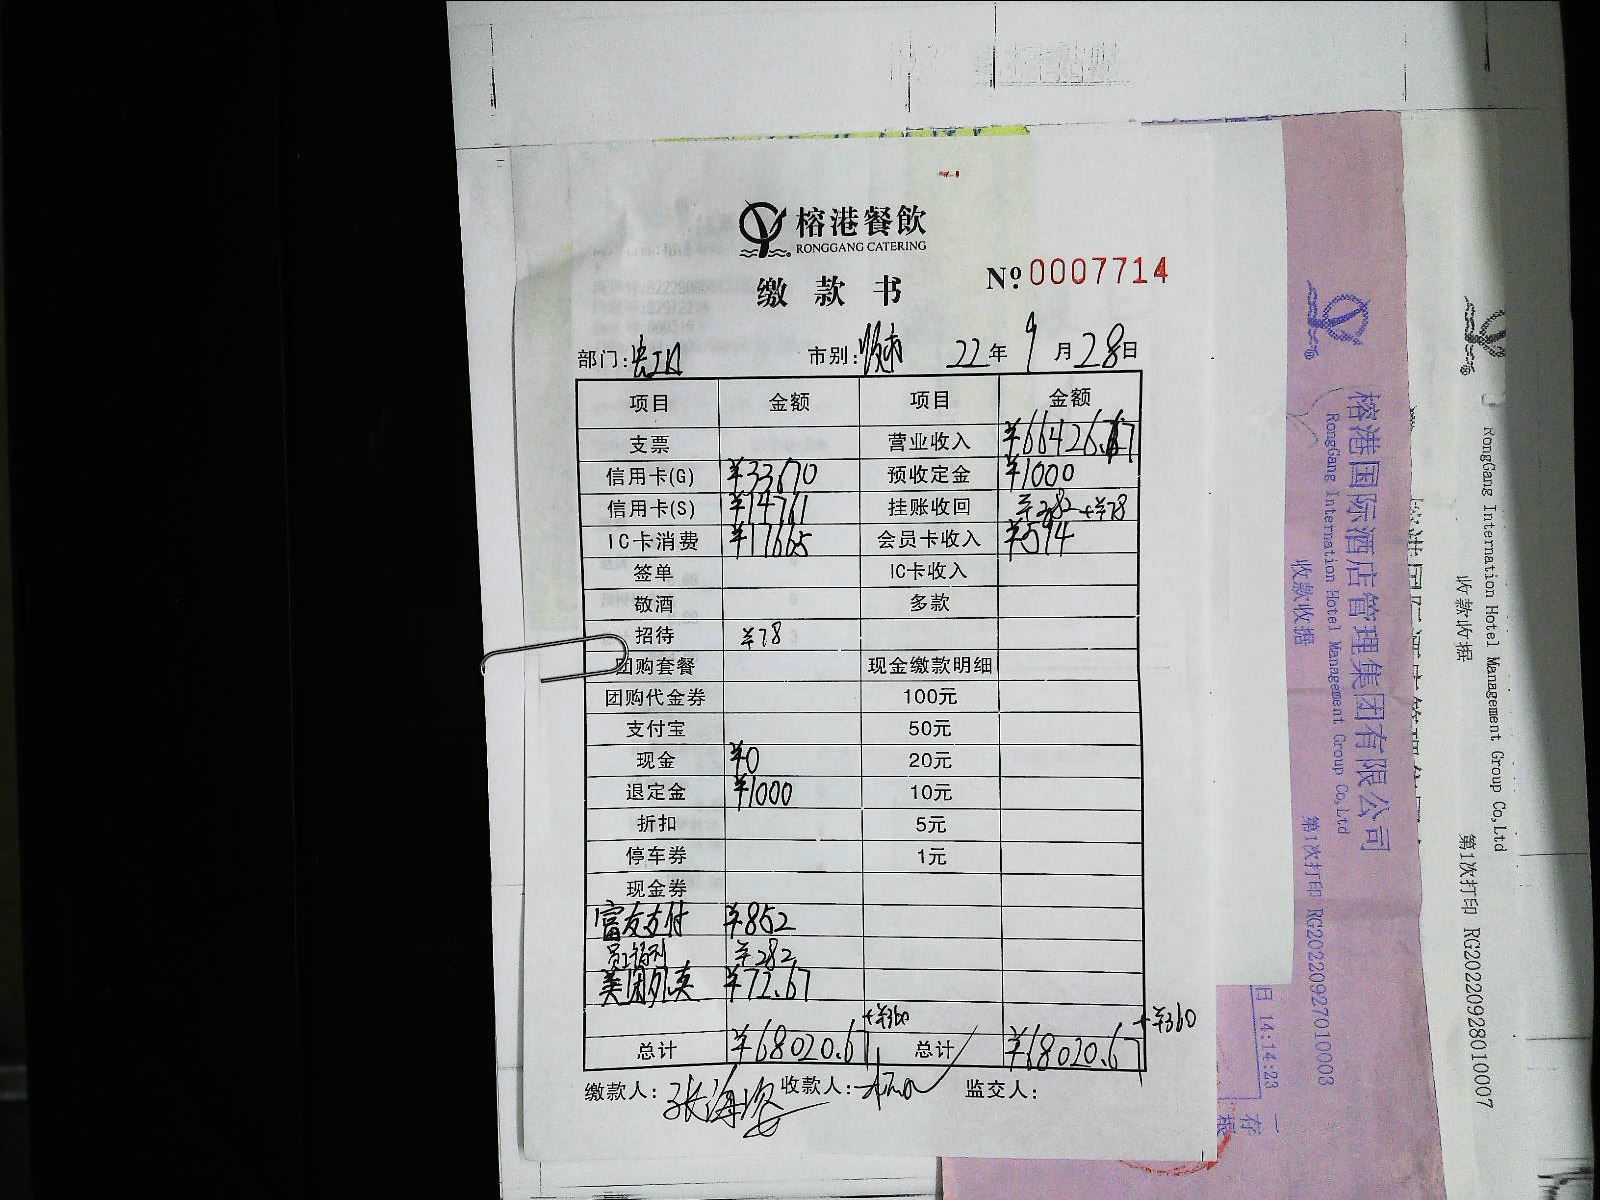 榕港餐飲
RONGGANG CATERING
缴款书
Nº 0007714
部门:
市别: 22年9月28日
项目 金额 项目 金额
支票 营业收入 ¥66426.67
信用卡(G) ¥33670 预收定金 ¥1000
信用卡(S) ¥14761 挂账收回 ¥282+¥78
IC卡消费 ¥17665 会员卡收入 ¥594
签单 IC卡收入
敬酒 多款
招待 ¥78
团购套餐 现金缴款明细
团购代金券 100元
支付宝 50元
现金 ¥0 20元
退定金 ¥1000 10元
折扣 5元
停车券 1元
现金券
富友支付 ¥852
员工福利 ¥282
美团外卖 ¥72.67
+¥360 +¥360
总计 ¥68020.67 总计 ¥68020.67
缴款人: 收款人: 监交人:
榕港国际酒店管理集团有限公司
RongGang International Hotel Management Group Co,Ltd
收款收据
第1次打印 RG20220927010003
日 14:14:23
存
根
RongGang International Hotel Management Group Co,Ltd
收款收据
第1次打印 RG20220928010007